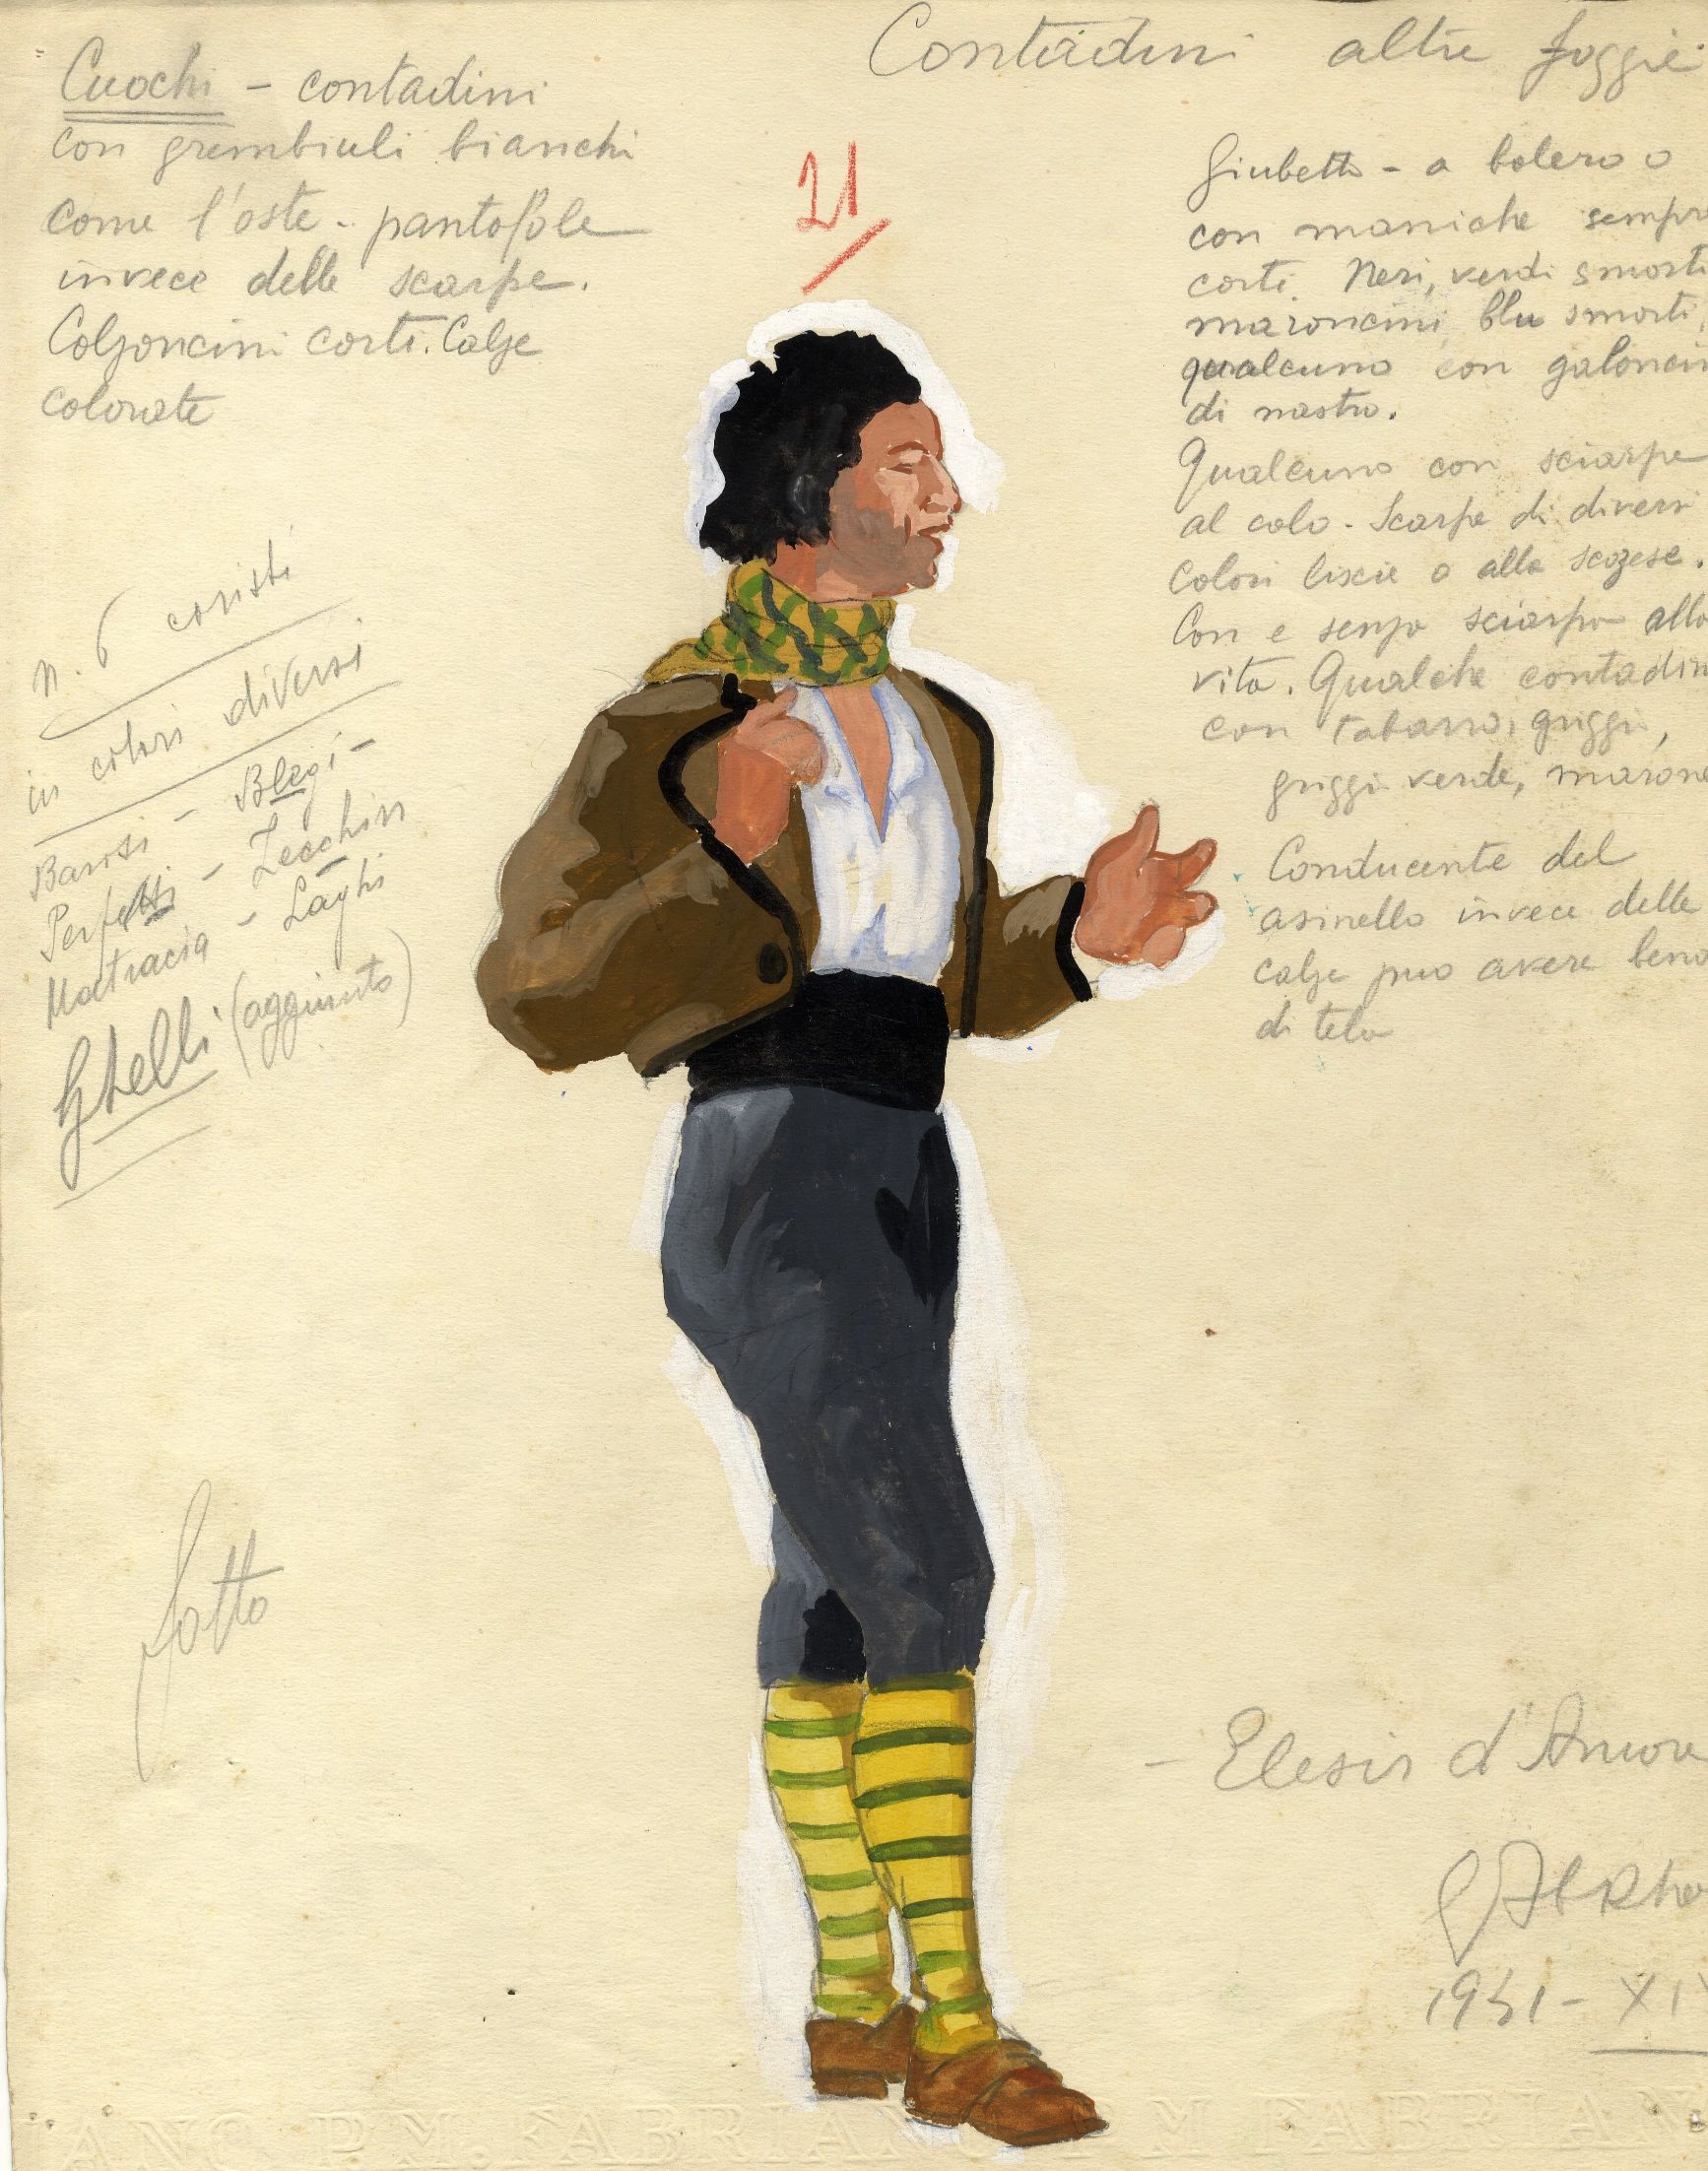 Contadini altre foggie
Cuochi - contadini
con grembiuli bianchi
come l'oste - pantofole
invece delle scarpe.
Calzoncini corti. Calze
colorate
21
Giubetto - a bolero o
con maniche sempre
corti. Neri, verdi smorti
maroncini, blu smorti,
qualcuno con galoncin
di nastro.
Qualcuno con sciarpe
al colo - Scarpe di diversi
colori liscie o alla scozese.
Con e senza sciarpa alla
vita. Qualche contadin
con tabarro, griggi,
griggi verde, marone
Conducente del
asinello invece delle
calze può avere bend
di tela
n. 6 coristi
in colori diversi
Barosi - Blegi -
Perfetti - Zecchin
Mostracia - Laghi
Ghelli (aggiunto)
fatto
- Elesir d'Amore
1941 - XI
ANO P.M. FABRIANO P.M FABRIAN